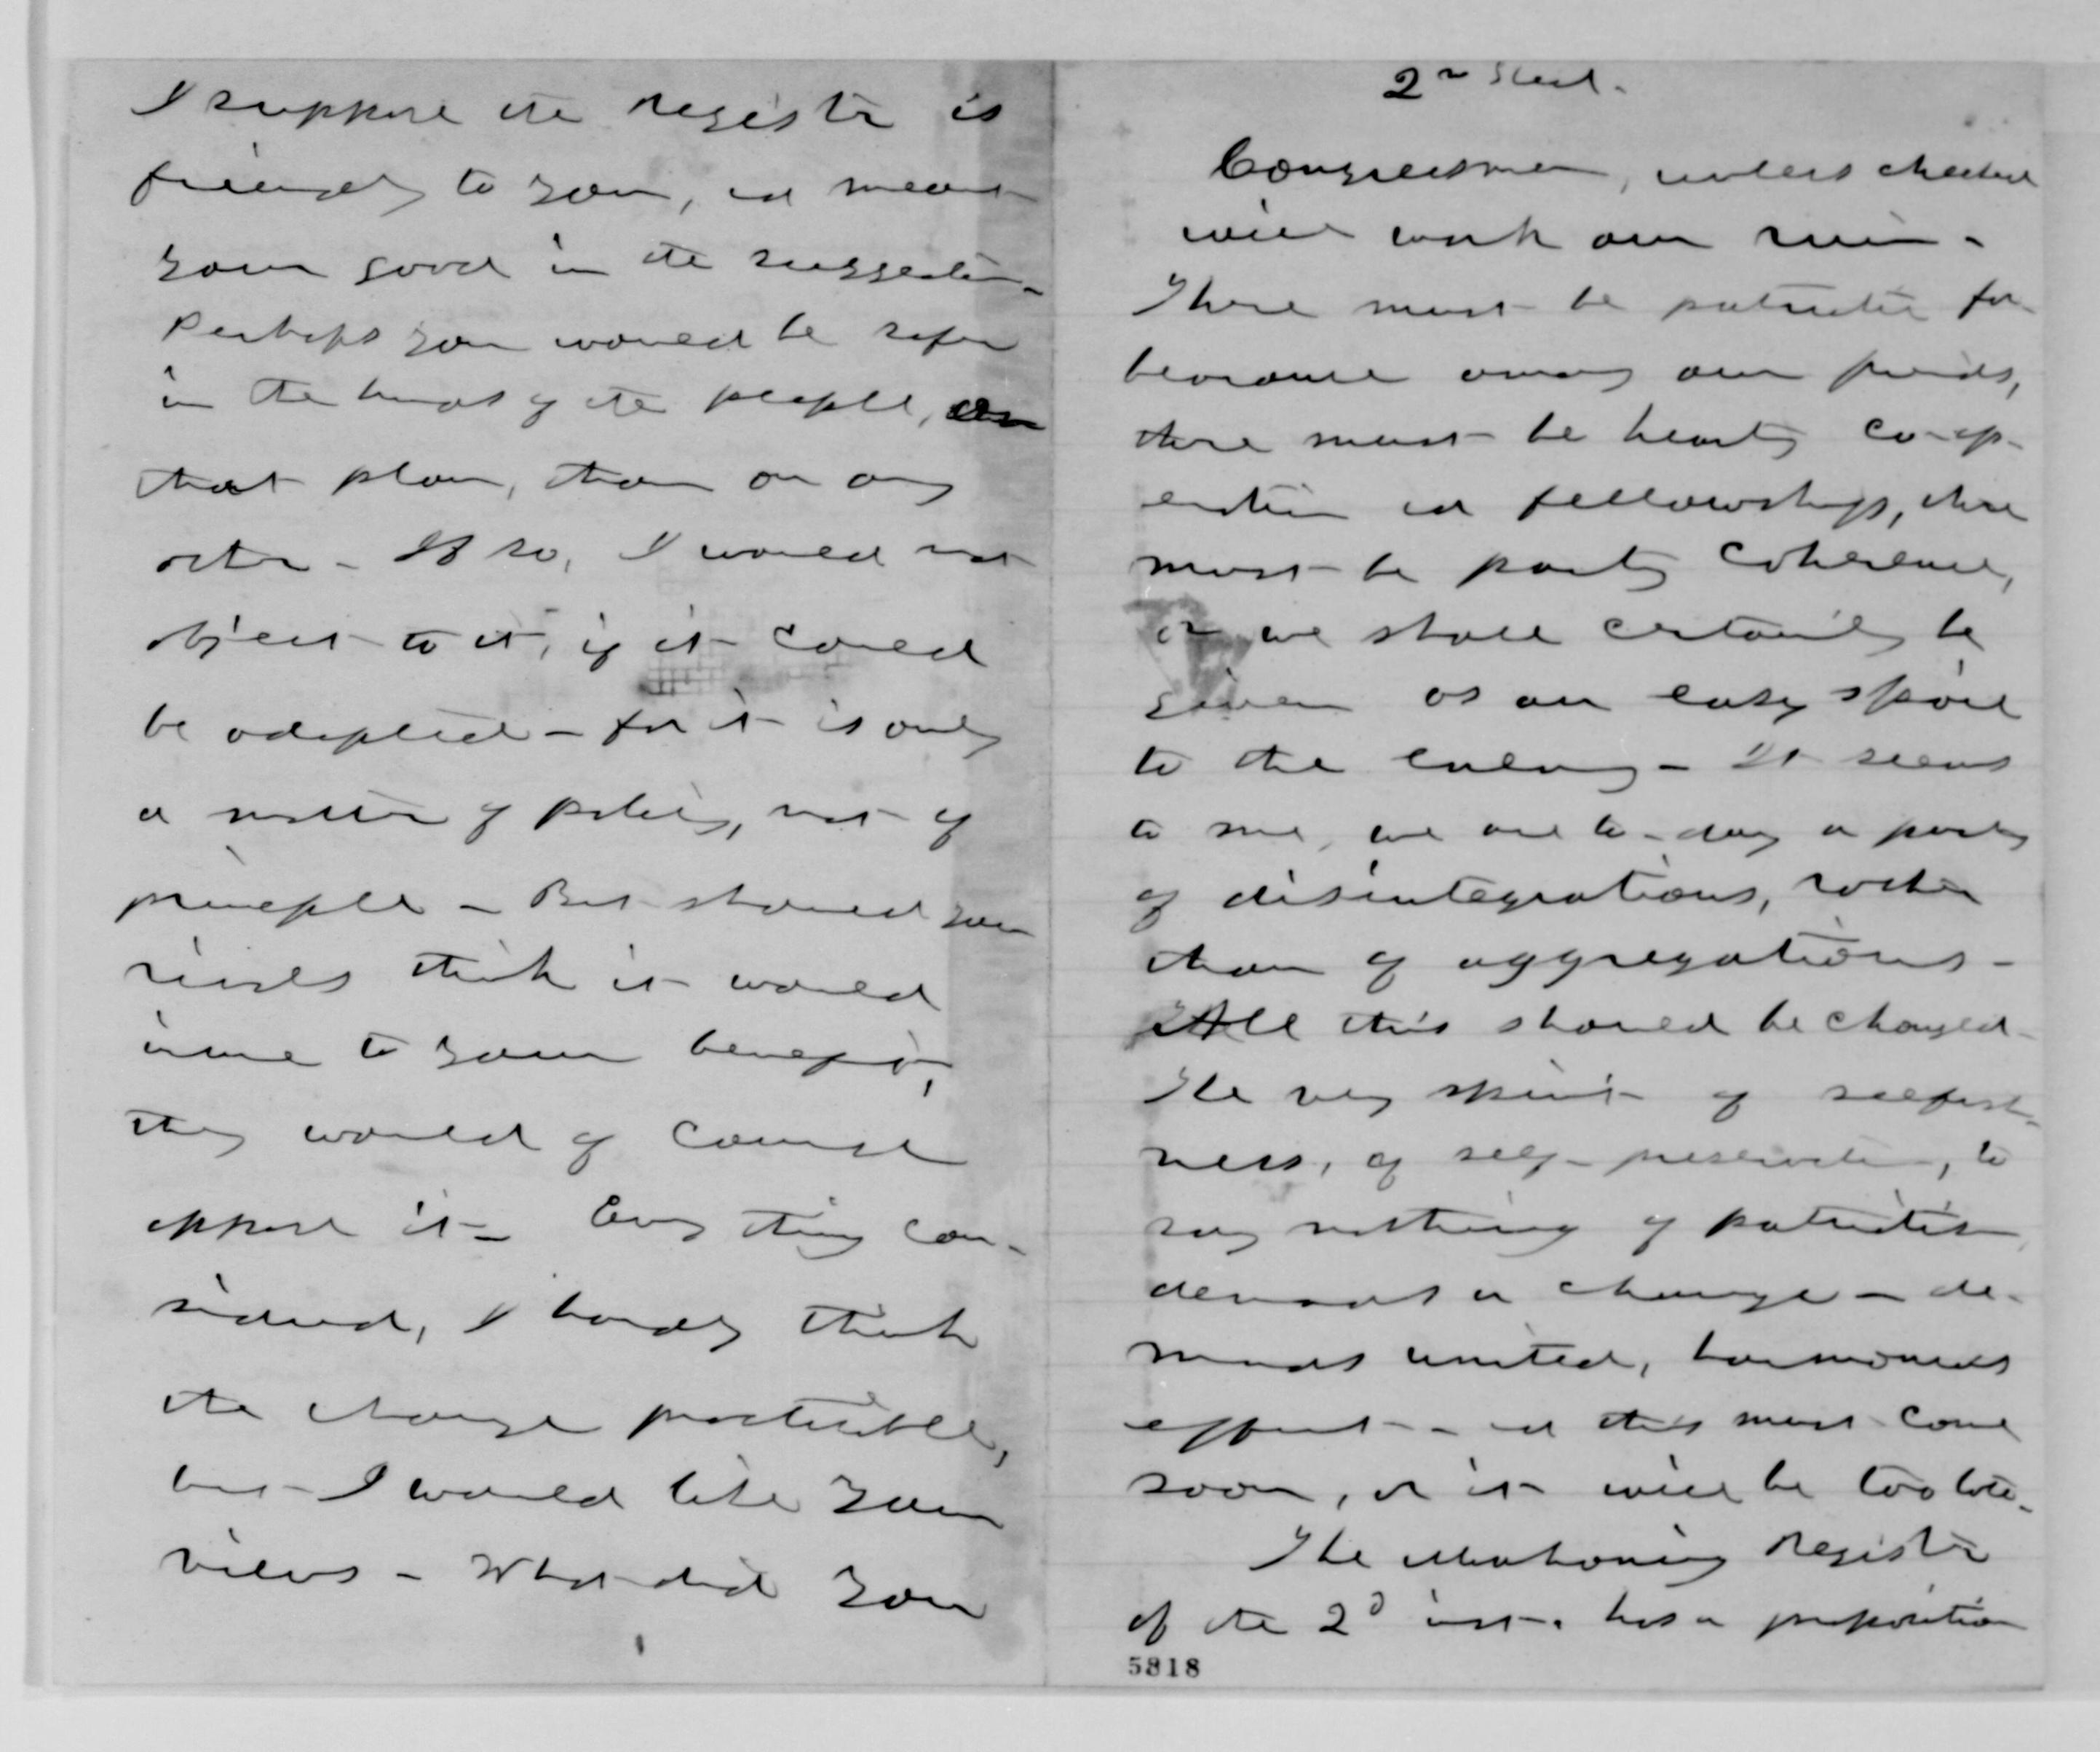 I suppose the Register is
friendly to you, and meant
your good in the suggestion -
Perhaps you would be safer
in the hands of the people, on
that plan, than on any
other - If so, I would not
object to it, if it could
be adopted - for it is only
a matter of policy, not of
principle - But should your
rivals think it would
inure to your benefit,
they would of course
oppose it - Every thing con-
sidered, I hardly think
the change practicable,
but I would like your
views - What did you
2nd Sheet.
Congressmen, unless checked
will work our ruin -
There must be patriotic for-
bearance among our friends,
there must be hearty co-op-
eration and fellowship, there
must be party coherence,
or we shall certainly be
given as an easy spoil
to the enemy - It seems
to me, we are to-day a party
of disintegrations, rather
than of aggregations -
All this should be changed -
The very spirit of selfish-
ness, of self-preservation, to
say nothing of patriotism
demands a change - de-
mands united, harmonious
effort - and this must come
soon, or it will be too late -
The Mahoning Register
of the 2d inst. has a proposition
5818